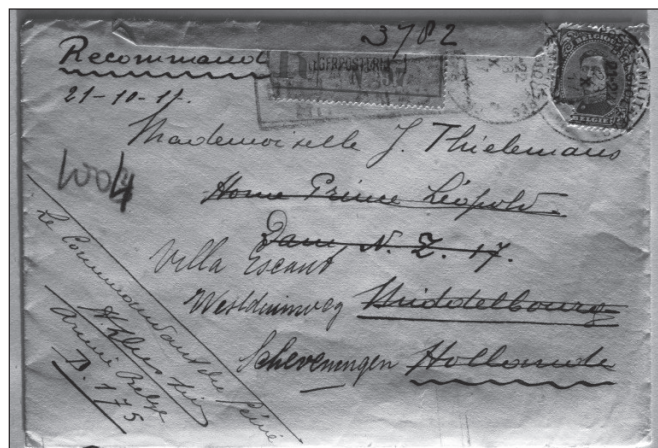 3782
Recommandé
LEGERPOSTERIJ
21-10-17.
BELGIE
Mademoiselle J. Thielemans
1004
Home Prince Léopold.
Dam, N. Z. 17.
Villa Escaut
Westduinweg Middelbourg
Scheveningen Hollande
Le Commandant du Génie
Armée Belge
D. 175